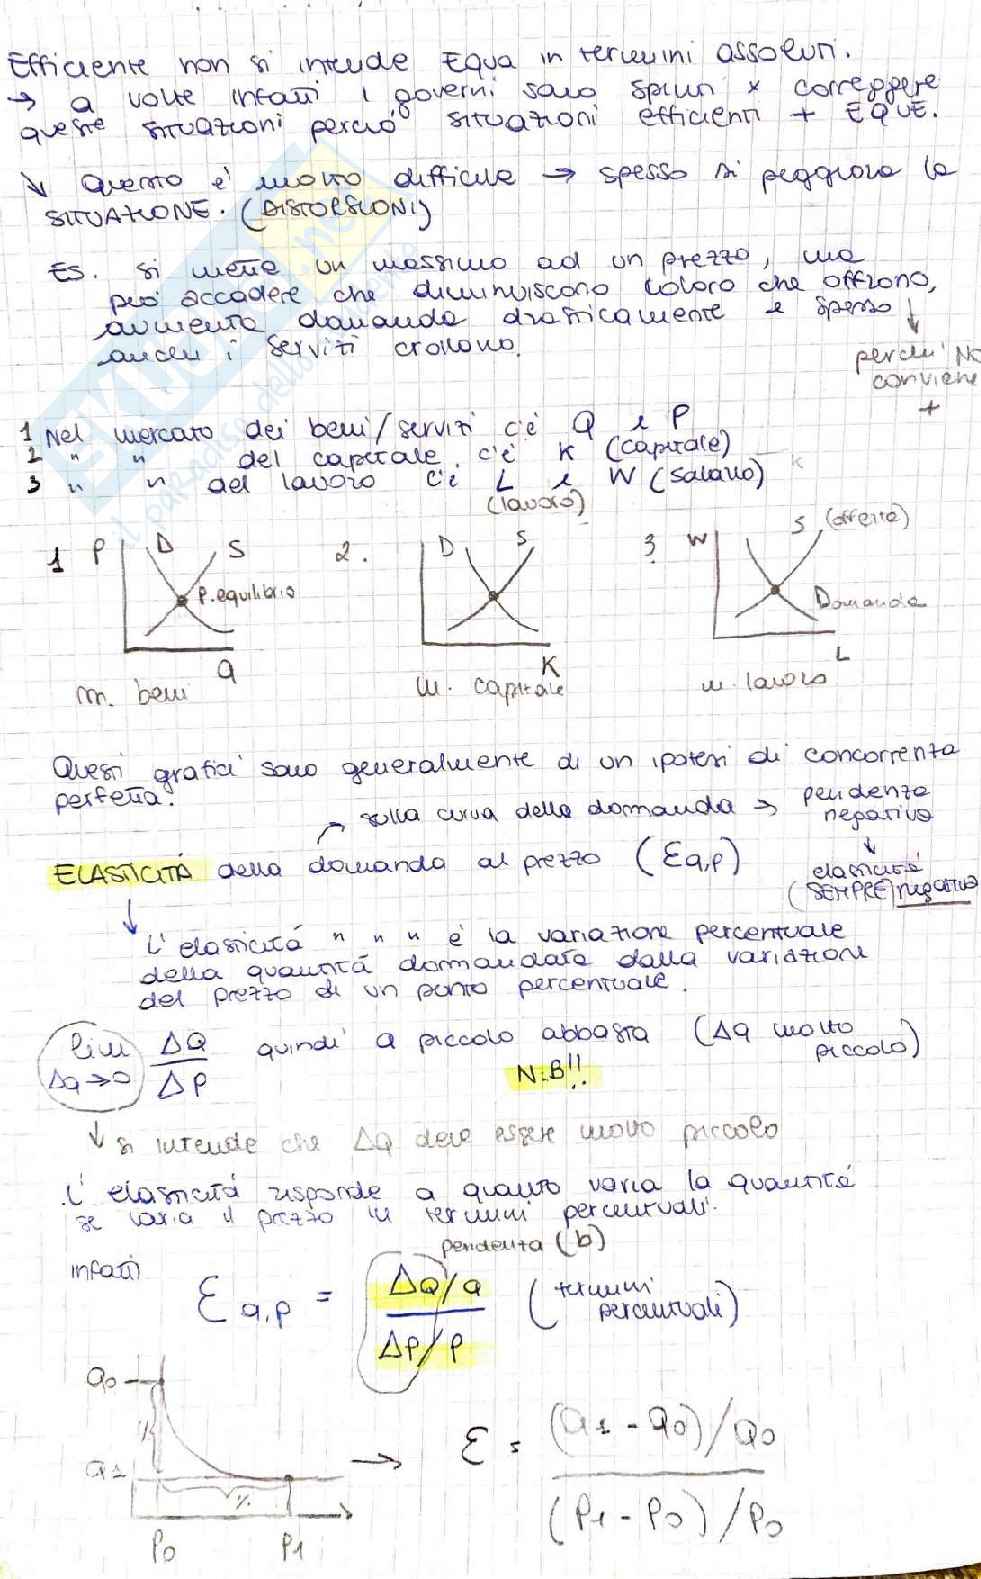 Efficiente non si intende Equa in termini assoluti.
→ a volte infatti i governi sono spinti x correggere
queste situazioni perciò situazioni efficienti + EQUE.
↘ Questo è molto difficile → spesso si peggiora la
SITUAZIONE. (DISTORSIONI)
Es. si mette un massimo ad un prezzo, ma
può accadere che diminuiscono coloro che offrono,
aumenta domanda drasticamente e spesso
anche i servizi crollano.
perché NO
conviene
+
1 Nel mercato dei beni/servizi c'è Q e P
2 " " del capitale c'è K (capitale)
3 " " del lavoro c'è L e W (salario)
(lavoro)
1 P D S
P.equilibrio
Q
m. beni
2. D S
K
m. capitale
3. W S (offerta)
Domanda
L
m. lavoro
Questi grafici sono generalmente di un ipotesi di concorrenza
perfetta.
→ sulla curva della domanda → pendenza
negativa
ELASTICITÀ della domanda al prezzo (Eq,p)
elasticità
(SEMPRE) negativa
L'elasticità " " " è la variazione percentuale
della quantità domandata dalla variazione
del prezzo di un punto percentuale.
lim ΔQ quindi a piccolo abbasta (Δq molto
Δq→0 ΔP piccolo)
N.B!!
↓ si intende che ΔQ deve essere molto piccolo
L'elasticità risponde a quanto varia la quantità
se varia il prezzo in termini percentuali.
pendenza (b)
infatti
Ɛq,p = ΔQ/Q (termini
ΔP/P percentuali)
Q0
Q1
%
%
P0 P1
→ Ɛ = (Q1 - Q0)/Q0
(P1 - P0)/P0